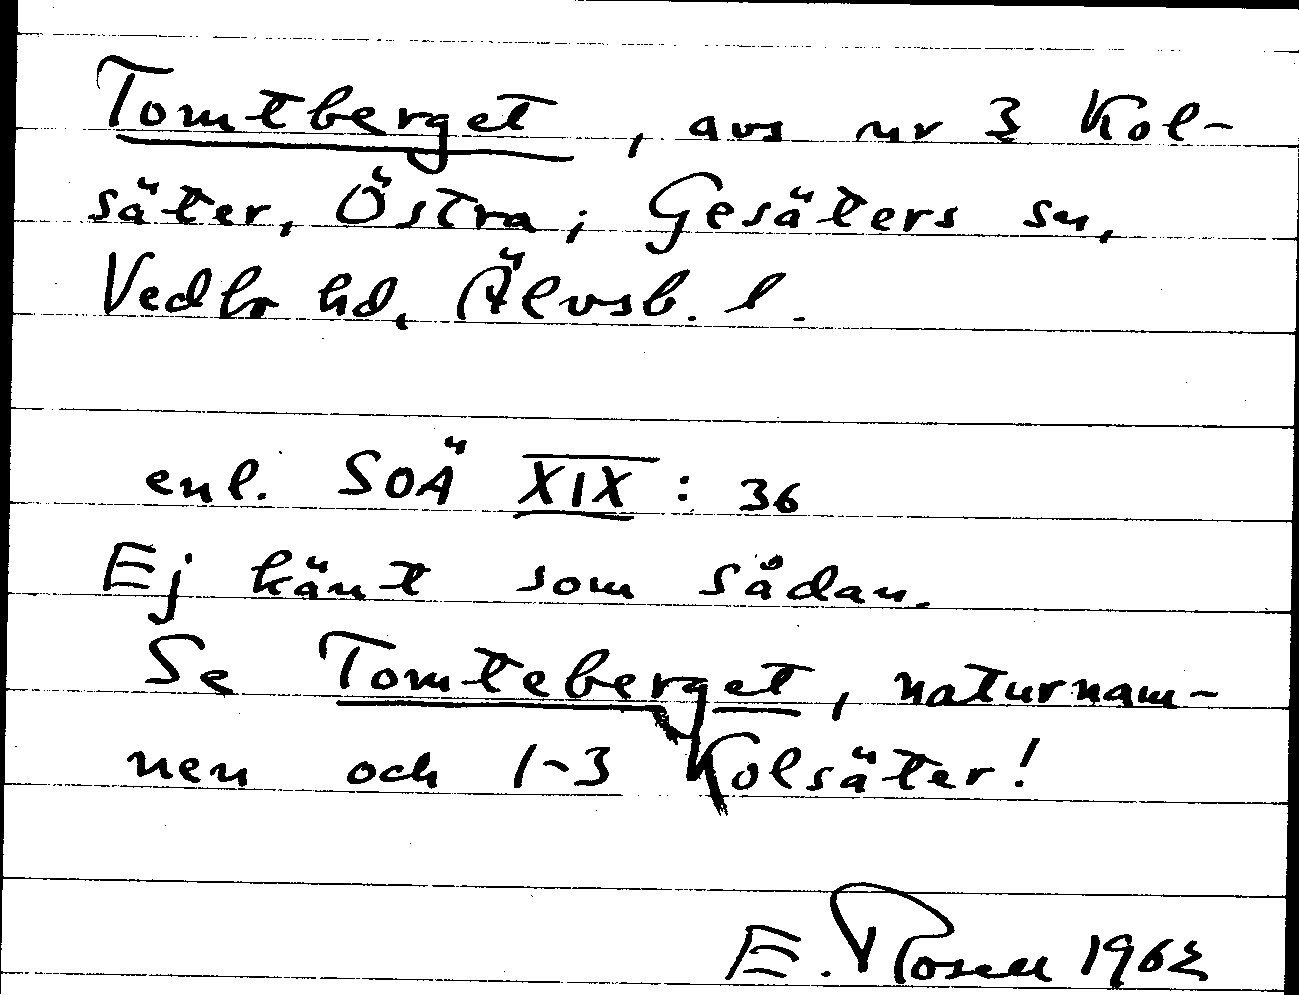 Tomtberget, avs nr 3 Kol-
säter, Östra; Gesäters sn,
Vedbo hd, Älvsb. l.
enl. SOÄ XIX : 36
Ej känt som sådan.
Se Tomteberget, naturnam-
nen och 1-3 Kolsäter!
E. Rosell 1962